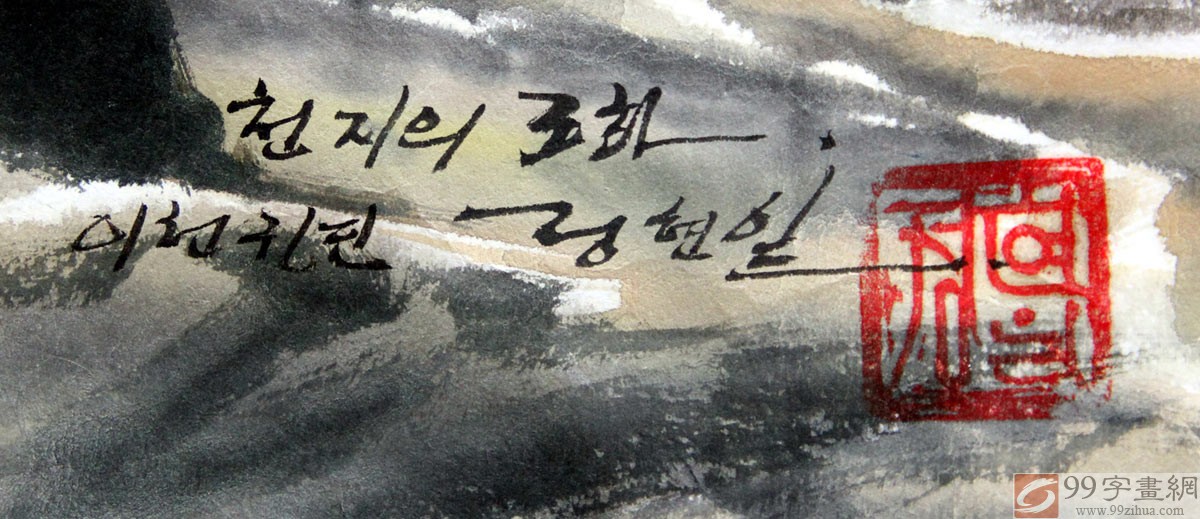 천지의 조화
이천 정현일
99字畫網
www.99zihua.com